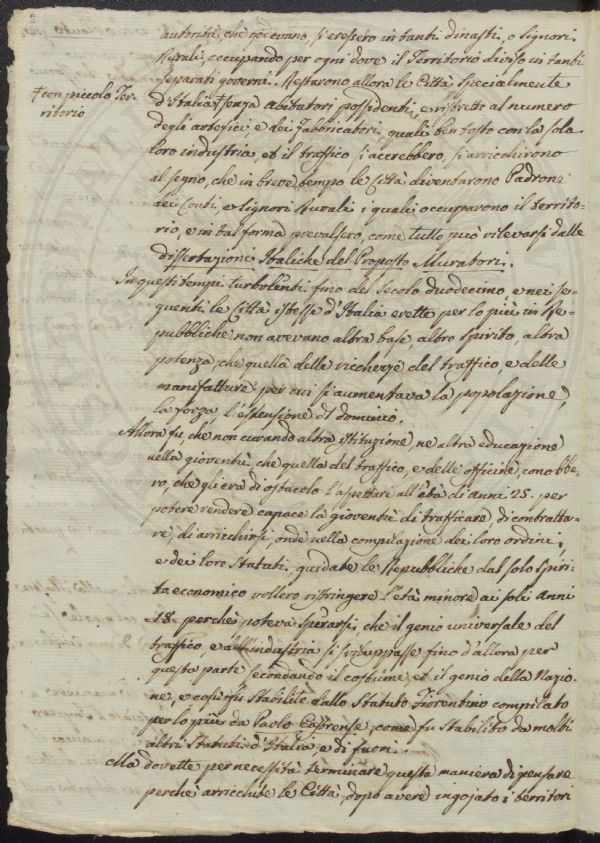 autorità, che godevano si eressero in tanti dinasti, o Signori
Rurali, occupando per ogni dove il Territorio diviso in tanti
separati governi. Restarono allora le Città specialmente
+ con piccolo Ter-
ritorio
d'Italia + senza abitatori possidenti, e ristrette al numero
degli artefici, e dei fabricatori, quali ben tosto con la sola
loro industria, et il traffico, si accrebbero, si arricchirono
al segno, che in breve tempo le Città diventarono Padrone
dei Conti, e Signori Rurali i quali occupavano il territo-
rio, e in tal forma prevalsero, come tutto può rilevarsi dalle
dissertazioni Italiche del Proposto Muratori.
In questi tempi turbolenti fino del Secolo duodecimo e nei se-
guenti le Città istesse d'Italia erette per lo più in Re-
pubbliche non avevano altra base, altro Spirito, altra
potenza, che quella delle ricchezze del traffico, e delle
manifatture per cui si aumentava la popolazione,
la forza, l'estensione del dominio.
Allora fu, che non curando altra istituzione, ne altra educazione
nella gioventù, che quella del traffico, e delle officine, conobbe-
ro, che gli era di ostacolo l'aspettare all'età di anni 25. per
potere rendere capace la gioventù di trafficare, di contratta-
re, di arricchirsi, onde nella compilazione dei loro ordini,
e dei loro Statuti, guidate le Repubbliche dal solo spiri-
to economico vollero ristringere l'età minore ai soli Anni
18. perchè poteva sperarsi, che il genio universale del
traffico, e dell'industria si sviluppasse fino d'allora per
questa parte secondando il costume, et il genio della Nazio-
ne, e così fù stabilito dallo Statuto Fiorentino compilato
per lo più da Paolo Castrense, come fu stabilito da molti
altri Statuti d'Italia e di fuori.
Ma dovette per necessità terminare questa maniera di pensare
perchè arricchite le Città, dopo avere ingojato i territori